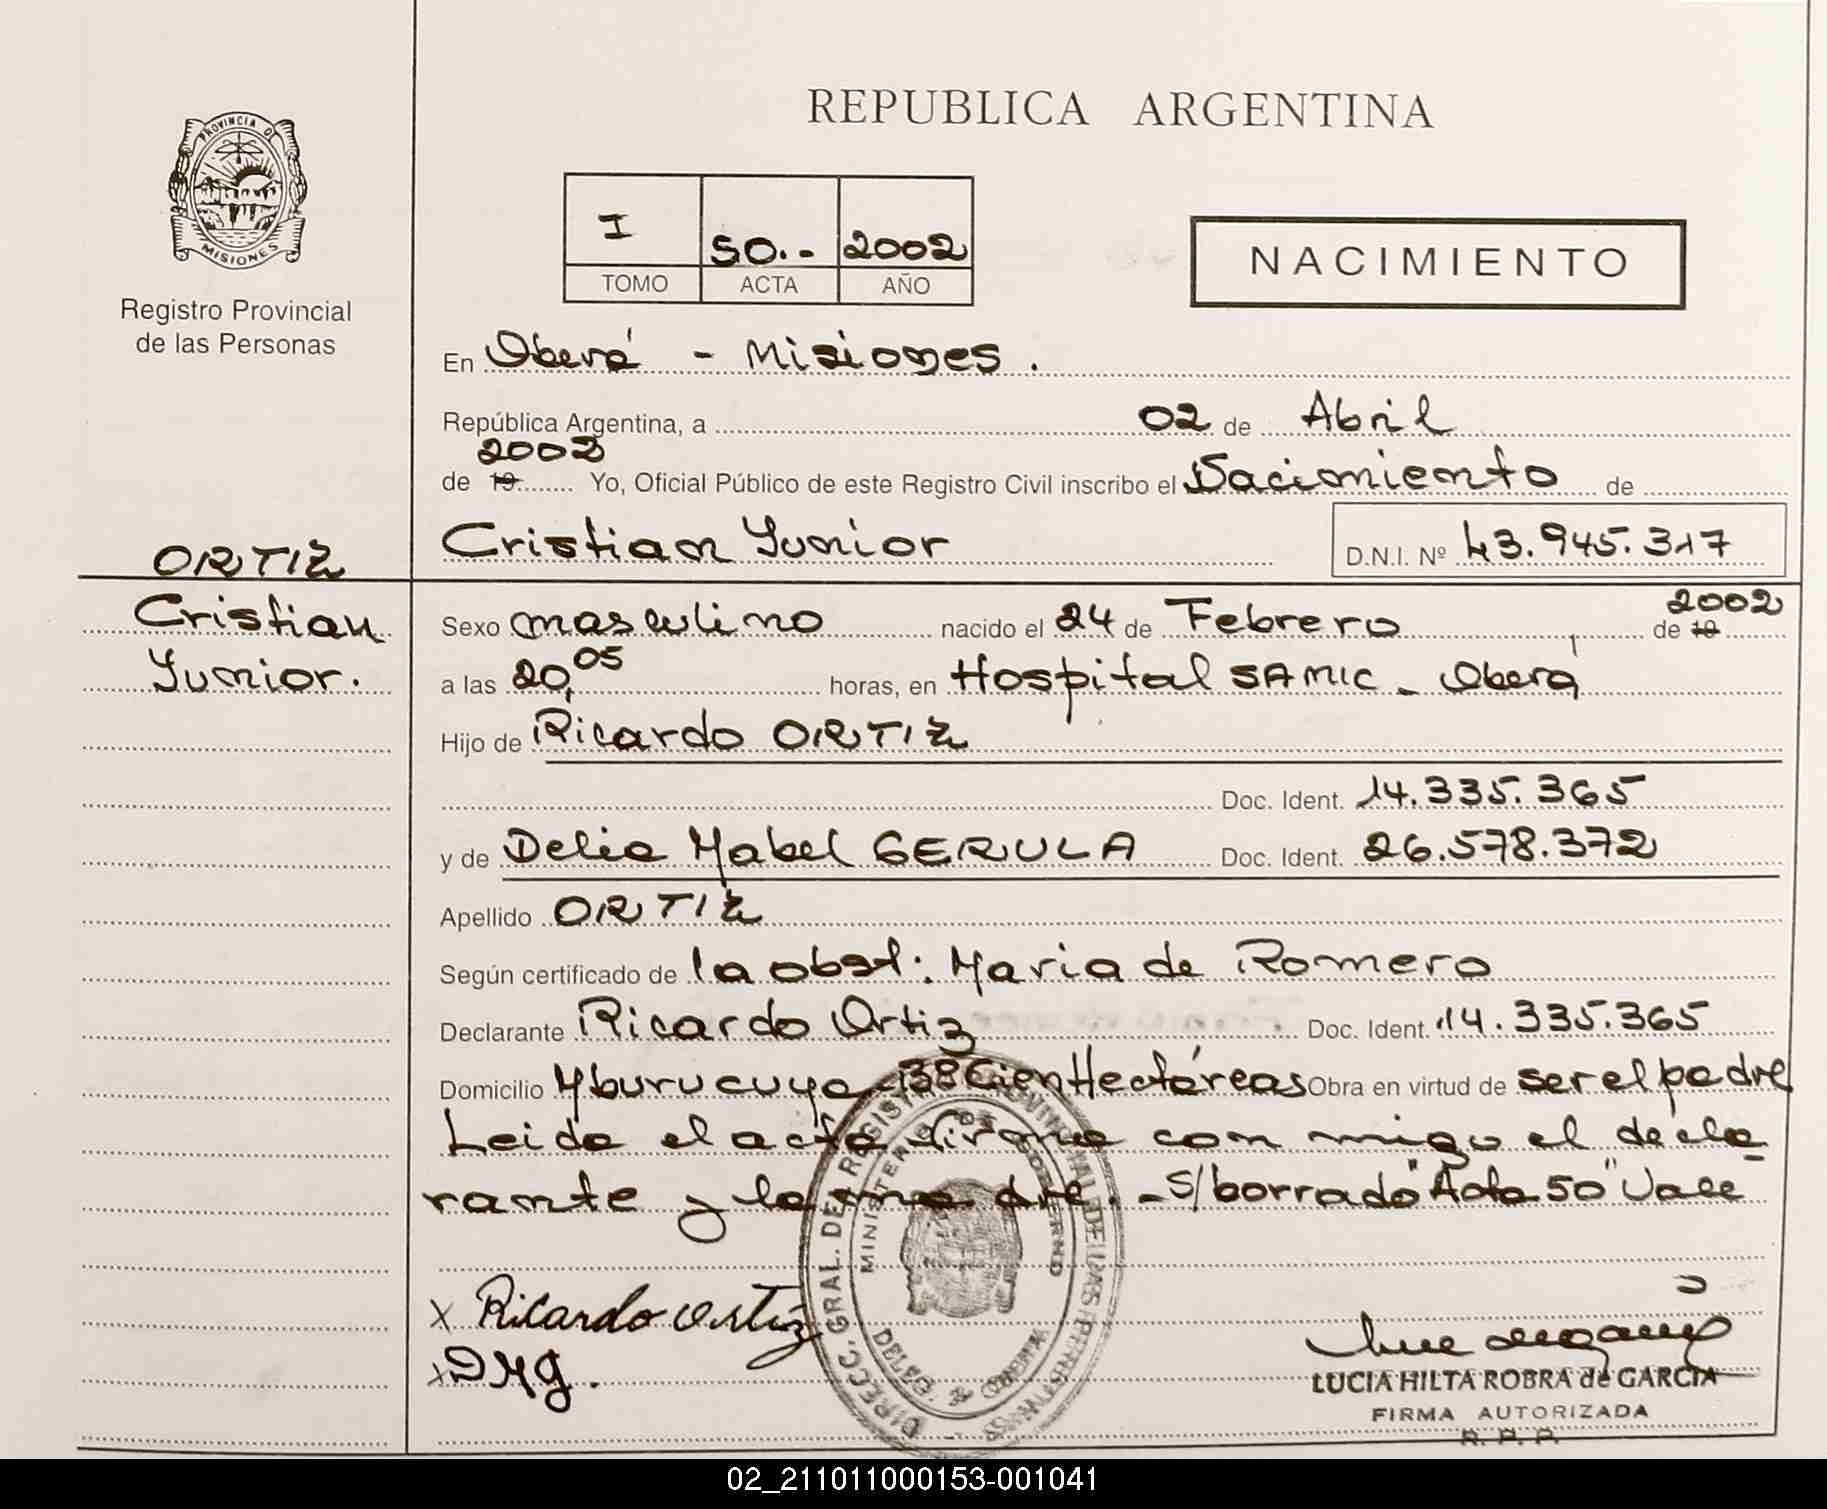 REPUBLICA ARGENTINA
PROVINCIA DE
MISIONES
Registro Provincial
de las Personas
I 50.- 2002
TOMO ACTA AÑO
NACIMIENTO
En Oberá - Misiones.
República Argentina, a 02 de Abril
2002
de 19 Yo, Oficial Público de este Registro Civil inscribo el Nacimiento de
ORTIZ
Cristian Yunior D.N.I. Nº 43.945.317
Cristian
Yunior.
2002
Sexo masculino nacido el 24 de Febrero de 19
a las 20,05 horas, en Hospital SAMIC - Oberá
Hijo de Ricardo ORTIZ
Doc. Ident. 14.335.365
y de Delia Mabel GERULA Doc. Ident. 26.578.372
Apellido ORTIZ
Según certificado de la obst: Maria de Romero
Declarante Ricardo Ortiz Doc. Ident. 14.335.365
Domicilio Yburucuya 38 Cien Hectáreas Obra en virtud de ser el padre
Leida el acta firma con migo el decla
rante y la ma dre. - S/borrado "Acta 50" Vale
DIRECC. GRAL. DEL REGISTRO PROVINCIAL DE LAS PERSONAS
MINISTERIO DE GOBIERNO
X Ricardo Ortiz
X DMG.
LUCIA HILTA ROBRA de GARCIA
FIRMA AUTORIZADA
R. P. P.
02_211011000153-001041